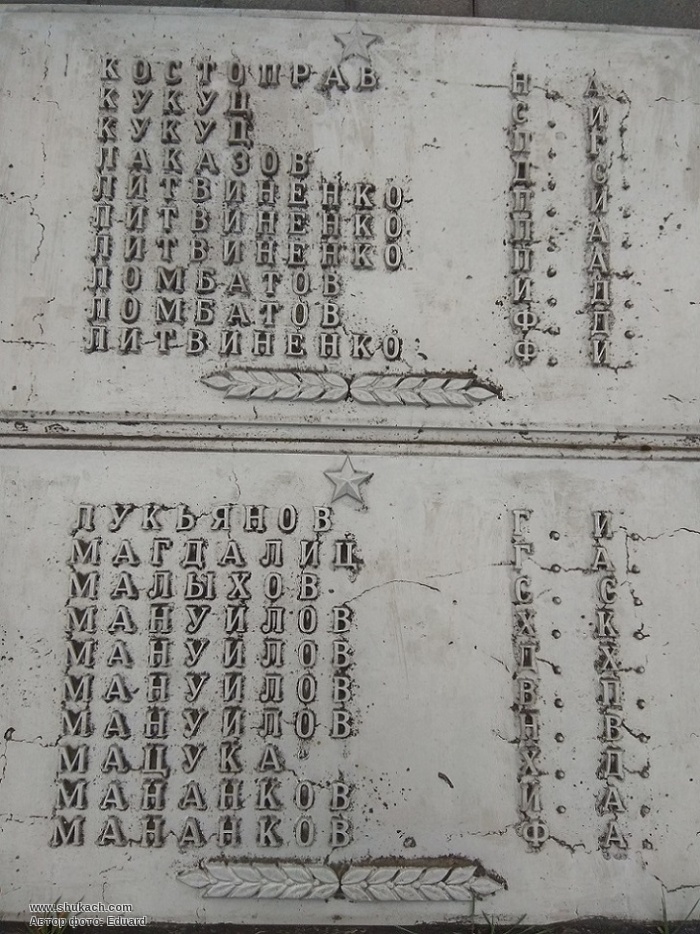 КОСТОПРАВ Н. А.
КУКУЦ С. И.
КУКУЦ П. Г.
ЛАКАЗОВ Д. С.
ЛИТВИНЕНКО П. И.
ЛИТВИНЕНКО П. А.
ЛИТВИНЕНКО П. А.
ЛОМБАТОВ И. Д.
ЛОМБАТОВ Ф. Д.
ЛИТВИНЕНКО Ф. И.
ЛУКЬЯНОВ Г. И.
МАГДАЛИЦ Г. А.
МАЛЫХОВ С. С.
МАНУИЛОВ Х. К.
МАНУИЛОВ Д. Х.
МАНУИЛОВ В. П.
МАНУИЛОВ Н. В.
МАЦУКА Х. Д.
МАНАНКОВ И. А.
МАНАНКОВ Ф. А.
www.shukach.com
Автор фото: Eduard